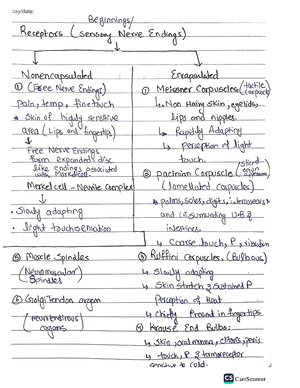 day/date:
Beginnings/
Receptors (sensory Nerve Endings)
Nonencapsulated
① (Free Nerve Endings)
Pain, temp, fine touch
* Skin of highly sensitive
area (Lips and fingertips)
Free Nerve Endings
form expanded disc
like endings associated
with
Merkel cell - Neurite complex
• Slowly adapting
• light touch sensation
⑤ Muscle Spindles
(Neuromuscular)
Spindles
⑥ Golgi Tendon organ
(neurotendinous
organs)
Encapsulated
① Meissner Corpuscles (tactile
corpuscle)
Non Hairy skin, eyelids,
lips and nipples.
Rapidly Adapting
perception of light
touch.
② pacinian Corpuscle (sliced
onion
appearance)
(lamellated corpuscles)
palms, soles, digits,
and surrounding U.B &
intestines.
Coarse touch, P, vibration
③ Ruffini Corpuscles. (Bulbous)
Slowly adapting
Skin stretch & sustained P
Perception of Heat
Chiefly Present in fingertips
④ Krause End Bulbs:
Skin, oral mucosa, clitoris, penis.
touch, P &
sensitive to cold.
CS CamScanner